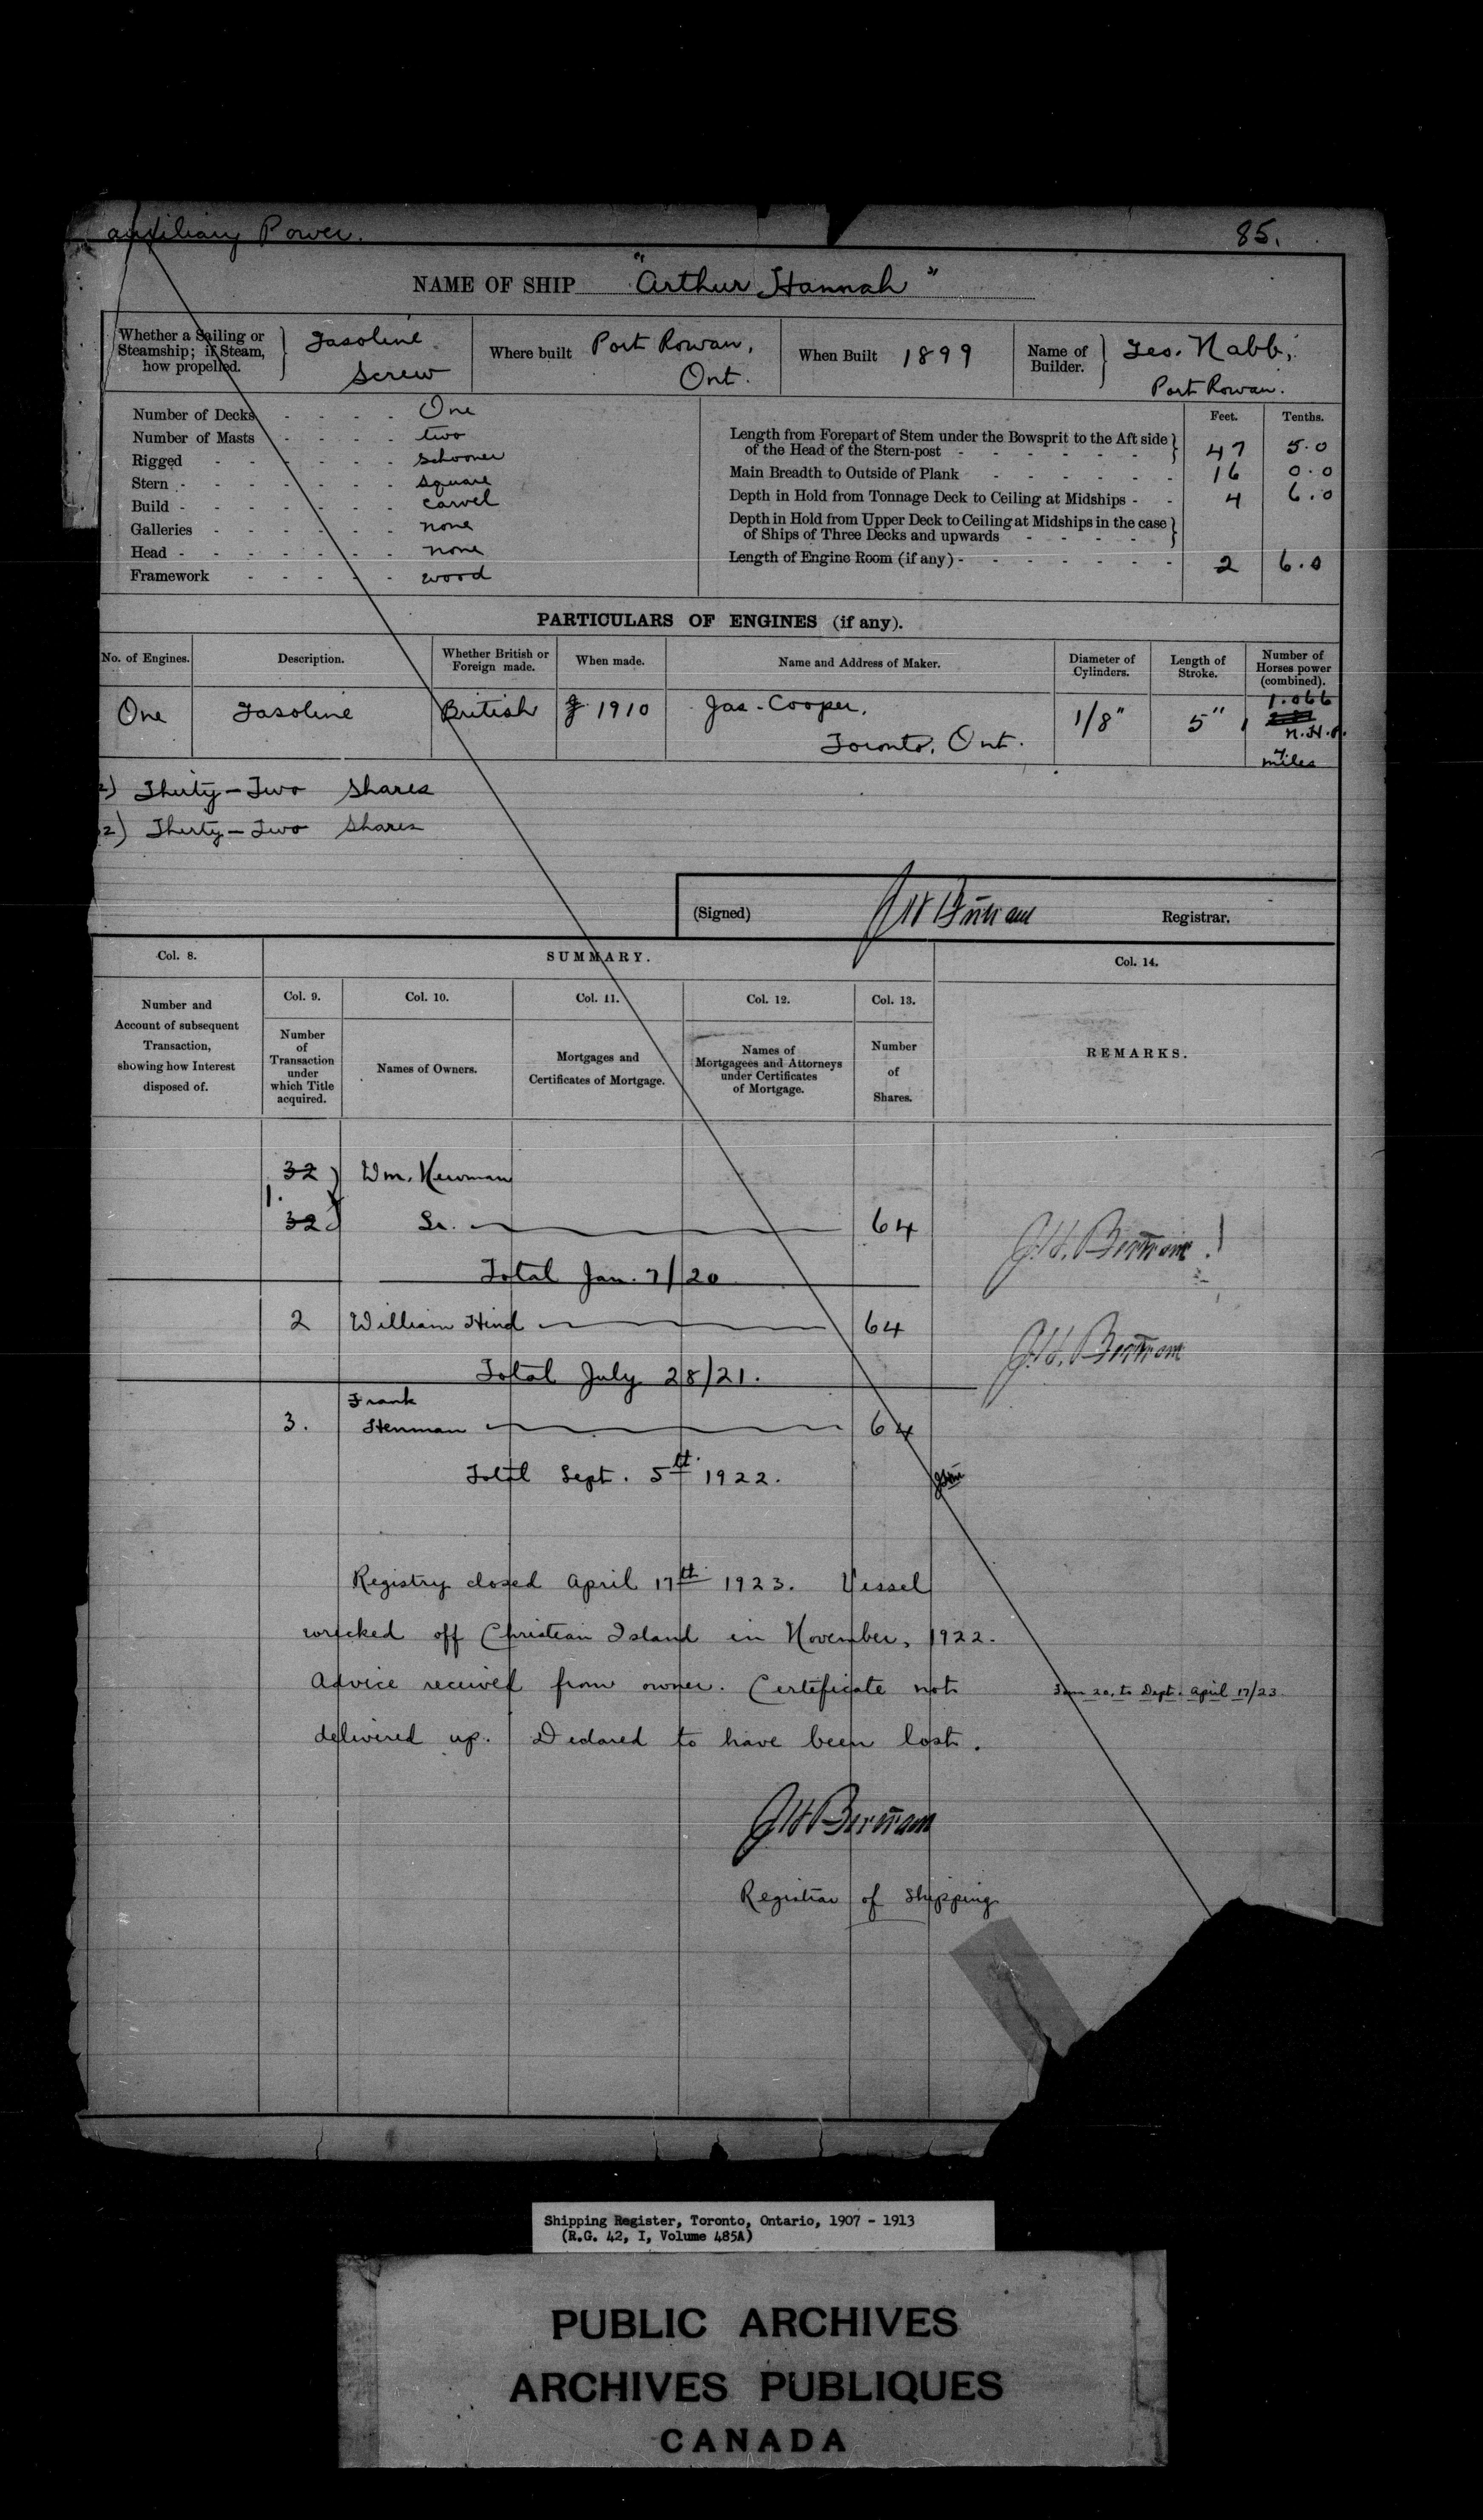 auxiliary Power. 85.
NAME OF SHIP "Arthur Hannah"
Whether a Sailing or Steamship; if Steam, how propelled. Gasoline Screw
Where built Port Rowan, Ont.
When Built 1899
Name of Builder. Geo. Nabb, Port Rowan.
Number of Decks One
Number of Masts two
Rigged schooner
Stern square
Build carvel
Galleries none
Head none
Framework wood
Feet. Tenths.
Length from Forepart of Stem under the Bowsprit to the Aft side
of the Head of the Stern-post 47 5.0
Main Breadth to Outside of Plank 16 0.0
Depth in Hold from Tonnage Deck to Ceiling at Midships 4 6.0
Depth in Hold from Upper Deck to Ceiling at Midships in the case
of Ships of Three Decks and upwards
Length of Engine Room (if any) 2 6.0
PARTICULARS OF ENGINES (if any).
No. of Engines. Description. Whether British or Foreign made. When made. Name and Address of Maker. Diameter of Cylinders. Length of Stroke. Number of Horses power (combined).
One Gasoline British 1910 Jas. Cooper, Toronto, Ont. 1/8" 5" 1.066 N.H.P.
7 miles
2) Thirty-Two Shares
2) Thirty-Two Shares
(Signed) JH Bertram Registrar.
Col. 8. SUMMARY. Col. 14.
Col. 9. Col. 10. Col. 11. Col. 12. Col. 13.
Number and Account of subsequent Transaction, showing how Interest disposed of.
Number of Transaction under which Title acquired.
Names of Owners.
Mortgages and Certificates of Mortgage.
Names of Mortgagees and Attorneys under Certificates of Mortgage.
Number of Shares.
REMARKS.
32) Wm. Newman
1.
32) Sr. 64 J.H. Bertram
Total Jan. 7/20
2 William Hind 64 J.H. Bertram
Total July 28/21.
Frank
3. Henman 64
Total Sept. 5th 1922.
Registry closed April 17th 1923. Vessel
wrecked off Christian Island in November, 1922.
Advice received from owner. Certificate not
delivered up. Declared to have been lost.
Form 20, to Dept. April 17/23
JH Bertram
Registrar of Shipping
Shipping Register, Toronto, Ontario, 1907 - 1913
(R.G. 42, I, Volume 485A)
PUBLIC ARCHIVES
ARCHIVES PUBLIQUES
CANADA